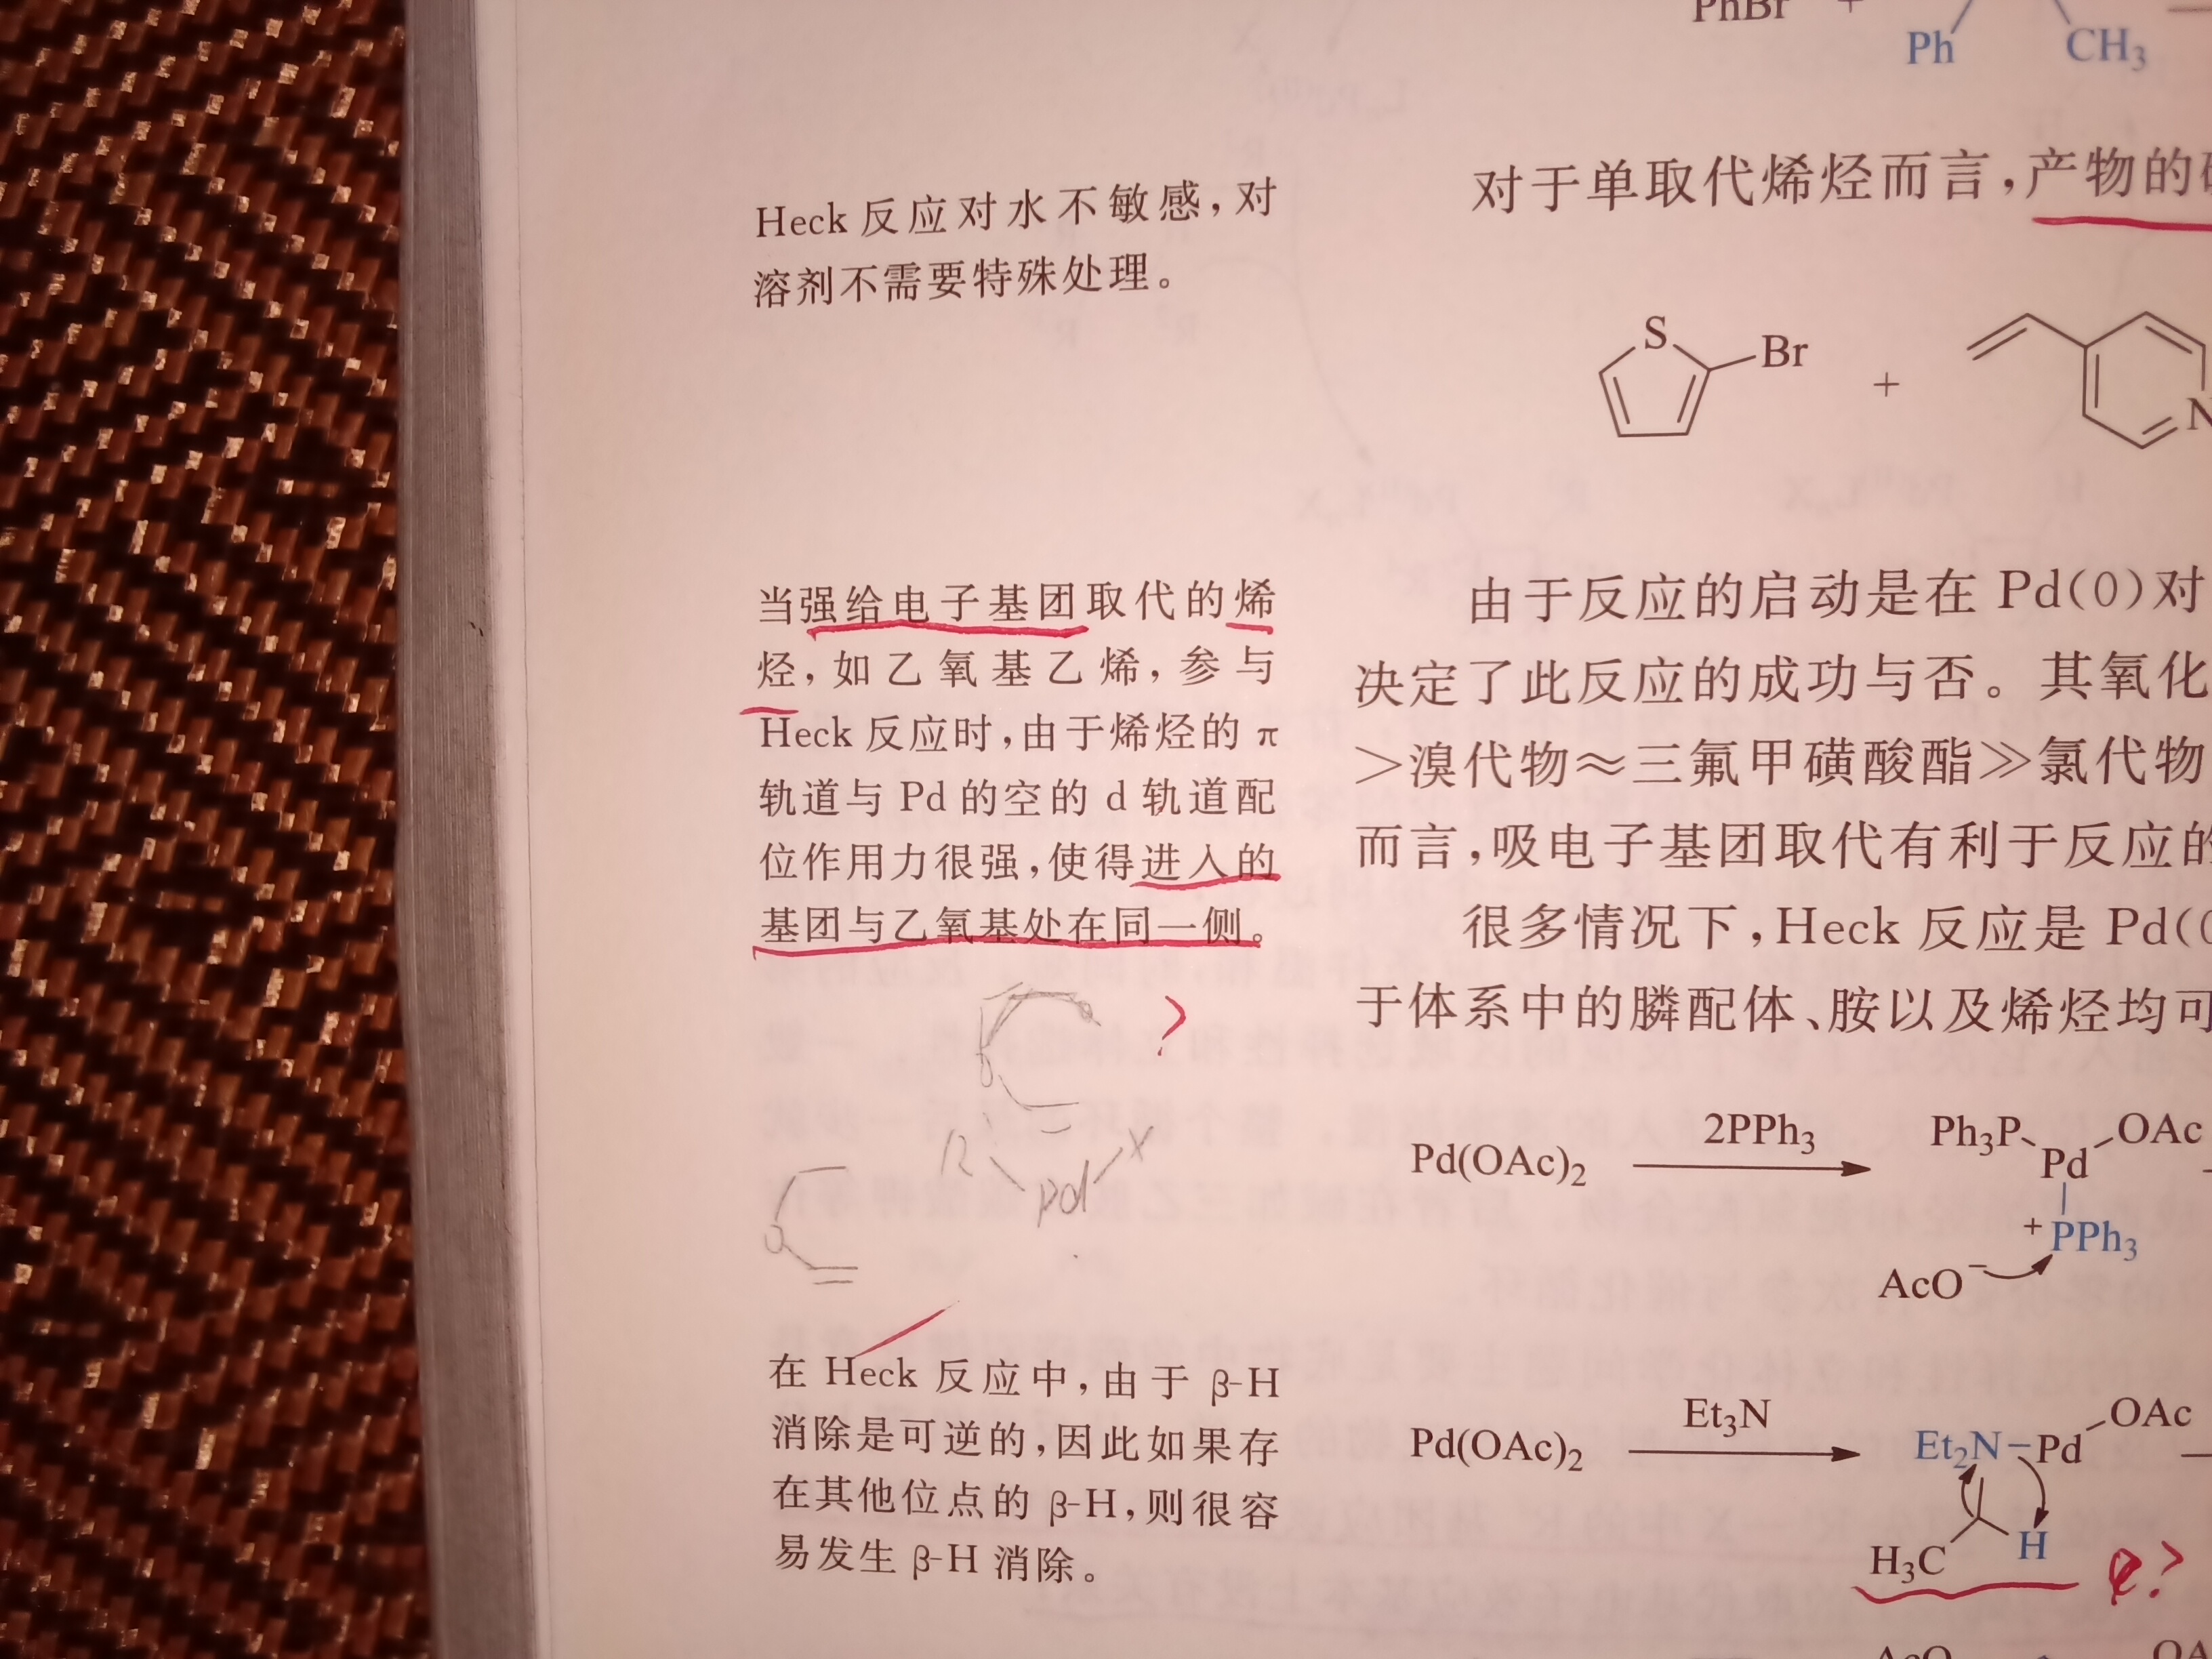 PhBr +
Ph CH₃
Heck 反应对水不敏感，对
溶剂不需要特殊处理。
对于单取代烯烃而言，产物的
S Br + N
当强给电子基团取代的烯
烃，如乙氧基乙烯，参与
Heck 反应时，由于烯烃的 π
轨道与 Pd 的空的 d 轨道配
位作用力很强，使得进入的
基团与乙氧基处在同一侧。
?
R Pd X
O
由于反应的启动是在 Pd(0)对
决定了此反应的成功与否。其氧化
>溴代物≈三氟甲磺酸酯≫氯代物
而言，吸电子基团取代有利于反应的
很多情况下，Heck 反应是 Pd(0
于体系中的膦配体、胺以及烯烃均可
Pd(OAc)₂ 2PPh₃ Ph₃P Pd OAc
+PPh₃
AcO⁻
在 Heck 反应中，由于 β-H
消除是可逆的，因此如果存
在其他位点的 β-H，则很容
易发生 β-H 消除。
Pd(OAc)₂ Et₃N Et₂N–Pd OAc
H₃C H
?
AcO OA